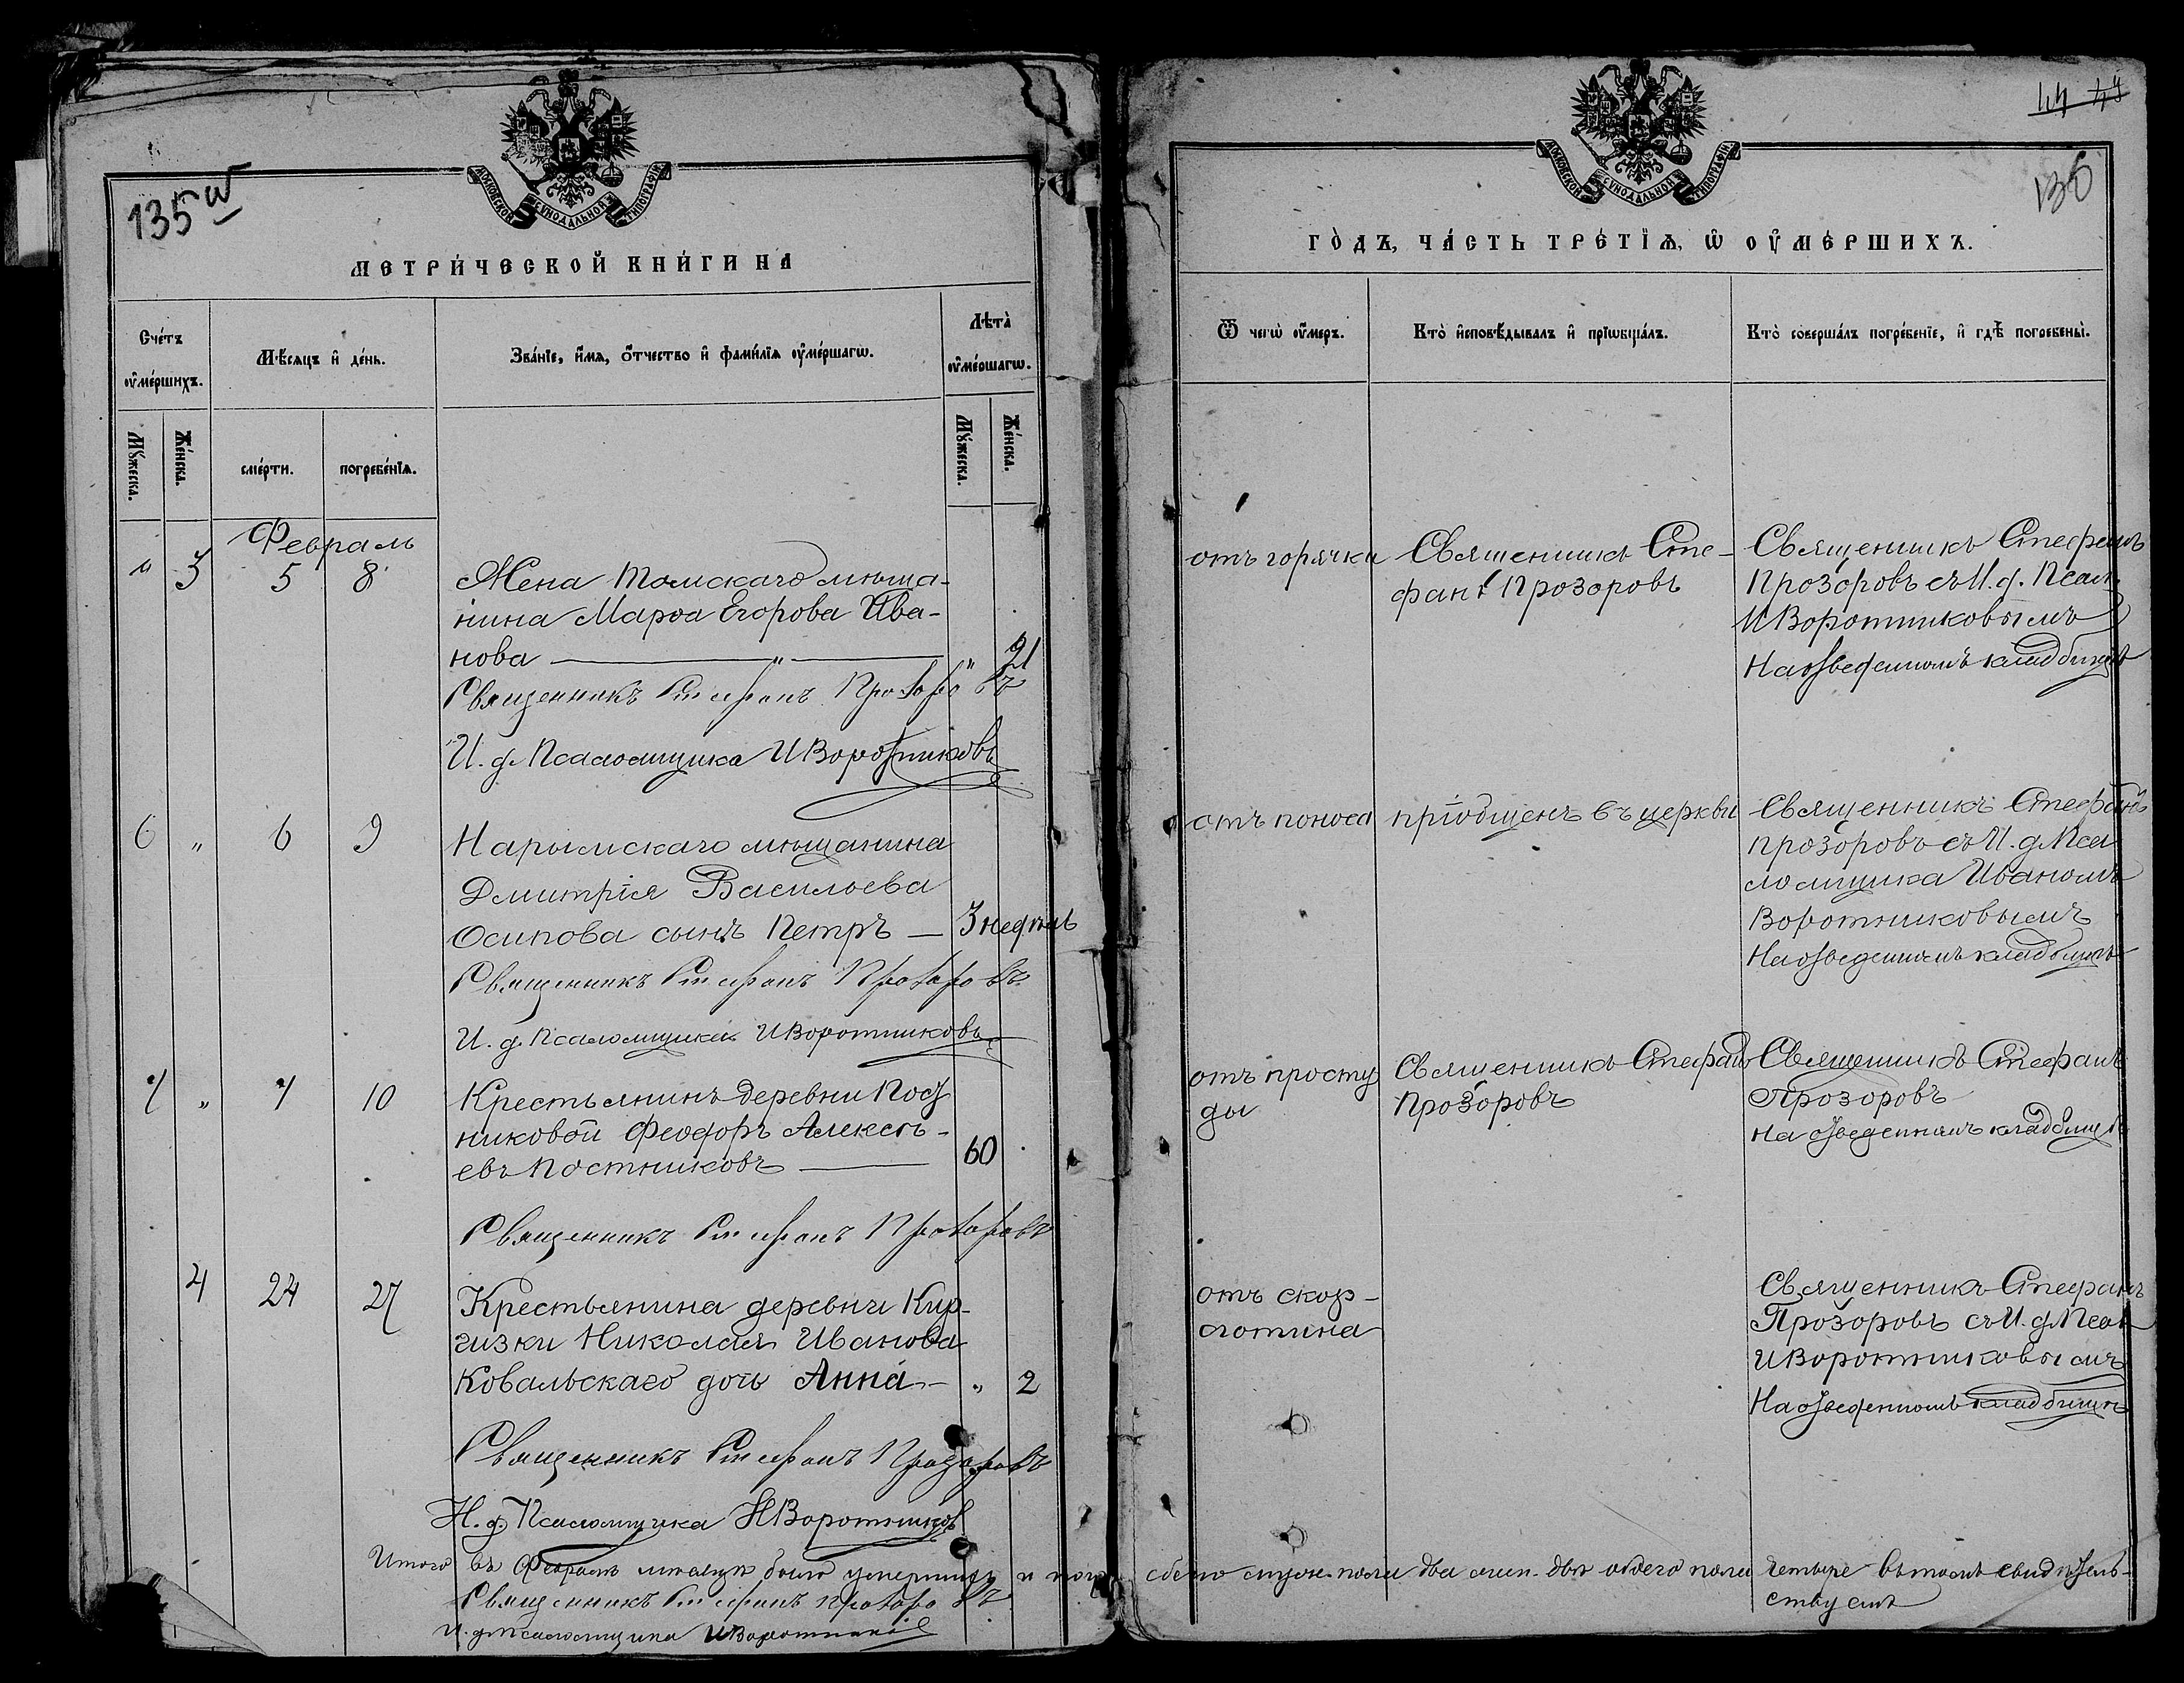 МОСКОВСКОЙ СѴНОДАЛЬНОЙ ТИПОГРАФІИ
135 об
МЕТРИ́ЧЕСКОЙ КНИ́ГИ НА
Сче́тъ ᲂу҆ме́ршихъ.
Мѣ́сяцъ и҆ де́нь.
Зва́нїе, и҆́мя, ѻ҆́тчество и҆ фами́лїя ᲂу҆ме́ршагѡ.
Лѣта̀ ᲂу҆ме́ршагѡ.
Мꙋ́жеска.
Же́нска.
сме́рти.
погребе́нїѧ.
Мꙋ́жеска.
Же́нска.
Февраль
" 3 5 8
Жена Томскаго мѣща-
нина Марѳа Егорова Ива-
нова — " — " 21
Священникъ Стефанъ Прозоровъ
И. д. Псаломщика И Воротниковъ
6 " 6 9
Нарымскаго мѣщанина
Дмитрія Васильева
Осипова сынъ Петръ — 3 недѣль
Священникъ Стефанъ Прозоровъ
И. д. Псаломщика И Воротниковъ
7 " 7 10
Крестьянинъ деревни Пост
никовой Феодоръ Алексѣ-
евъ Постниковъ — 60
Священникъ Стефанъ Прозоровъ
4 24 27
Крестьянина деревни Кир-
гизки Николая Иванова
Ковальскаго дочь Анна — " 2
Священникъ Стефанъ Прозоровъ
И. д. Псаломщика И Воротниковъ
Итого въ Февралѣ мѣсяцѣ было умершихъ и
Священникъ Стефанъ Прозоровъ
И. д. Псаломщика И Воротниковъ
МОСКОВСКОЙ СѴНОДАЛЬНОЙ ТИПОГРАФІИ
136
ГО́ДЪ, ЧА́СТЬ ТРЕ́ТЇѦ, Ѡ҆ ОУ҆МЕ́РШИХЪ.
Ѿ чегѡ̀ ᲂу҆́меръ.
Кто̀ и҆сповѣ́дывалъ и҆ прїѡбща́лъ.
Кто̀ соверша́лъ погребе́нїе, и҆ гдѣ̀ погребены̀.
отъ горячки
Священникъ Сте-
фанъ Прозоровъ
Священникъ Стефанъ
Прозоровъ съ И. д. Псал.
И Воротниковымъ
На отведенномъ кладбищѣ
отъ поноса
пріобщенъ въ церкви
Священникъ Стефанъ
Прозоровъ съ И. д. Пса
ломщика Иваномъ
Воротниковымъ
На отведенномъ кладбищѣ
отъ просту
ды
Священникъ Стефанъ
Прозоровъ
Священникъ Стефанъ
Прозоровъ
на отведенномъ кладбищѣ
отъ скор-
лотина
Священникъ Стефанъ
Прозоровъ съ И. д. Псал
И Воротниковымъ
На отведенномъ кладбищѣ
муж. пола два жен. двѣ обоего пола четыре въ томъ свидѣтель-
ствуемъ